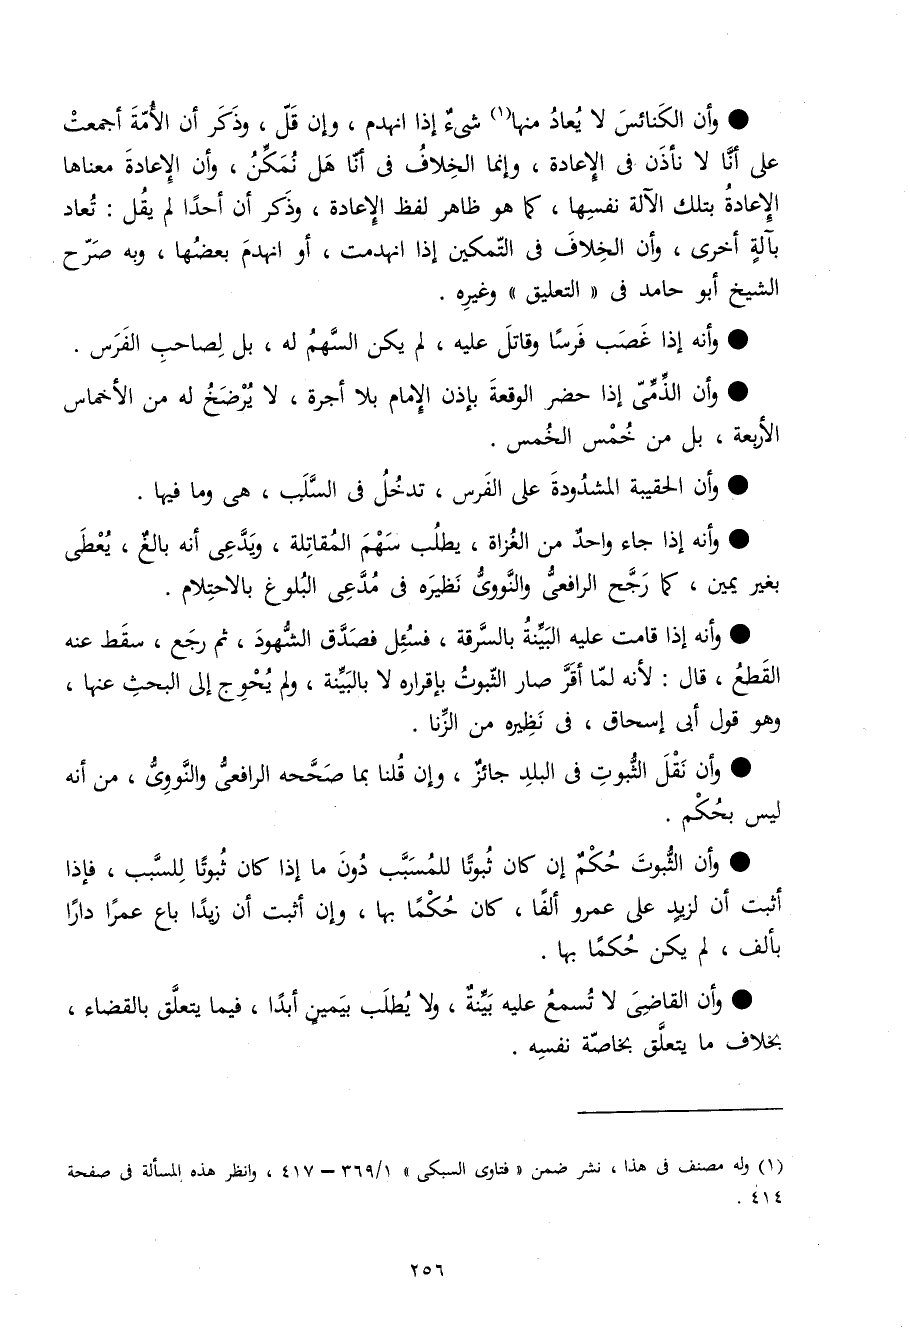 ● وأن الكَنائسَ لا يُعادُ منها(١) شىءٌ إذا انهدم ، وإن قَلّ ، وذَكَر أن الأُمّةَ أجمعتْ
على أنَّا لا نأذَن فى الإعادة ، وإنما الخِلافُ فى أنّا هَل نُمَكِّنُ ، وأن الإعادةَ معناها
الإعادةُ بتلك الآلة نفسِها ، كما هو ظاهر لفظ الإعادة ، وذَكر أن أحدًا لم يقُل : تُعاد
بآلةٍ أخرى ، وأن الخِلافَ فى التّمكين إذا انهدمت ، أو انهدمَ بعضُها ، وبه صَرّح
الشيخ أبو حامد فى « التعليق » وغيرِه .
● وأنه إذا غَصَب فَرسًا وقاتلَ عليه ، لم يكن السَّهمُ له ، بل لِصاحبِ الفَرَس .
● وأن الذِّمِّىّ إذا حضر الوقعةَ بإذن الإمام بلا أجرة ، لا يُرْضَخُ له من الأخماس
الأربعة ، بل من خُمْس الخُمس .
● وأن الحقيبة المشدُودةَ على الفَرس ، تدخُلُ فى السَّلَب ، هى وما فيها .
● وأنه إذا جاء واحدٌ من الغُزاة ، يطلُب سَهْمَ المُقاتِلة ، ويَدَّعِى أنه بالغٌ ، يُعْطَى
بغير يمين ، كما رَجَّح الرافعىُّ والنَّووىُّ نَظيرَه فى مُدَّعِى البُلوغ بالاحتِلام .
● وأنه إذا قامت عليه البَيِّنةُ بالسَّرقة ، فسُئِل فصَدَّق الشُّهودَ ، ثم رجَع ، سقَط عنه
القَطعُ ، قال : لأنه لمّا أقَرَّ صار الثّبوتُ بإقراره لا بالبَيِّنة ، ولم يُحْوِج إلى البحثِ عنها ،
وهو قول أبى إسحاق ، فى نَظِيره من الزِّنا .
● وأن نَقْلَ الثُّبوتِ فى البلدِ جائزٌ ، وإن قُلنا بما صَحَّحه الرافعىُّ والنَّووِىُّ ، من أنه
ليس بحُكْم .
● وأن الثُّبوتَ حُكْمٌ إن كان ثُبوتًا للمُسَبَّب دُونَ ما إذا كان ثُبوتًا لِلسَّبب ، فإذا
أثبت أن لزيدٍ على عمرو ألفًا ، كان حُكْمًا بها ، وإن أثبت أن زيدًا باع عمرًا دارًا
بألف ، لم يكن حُكمًا بها .
● وأن القاضِىَ لا تُسمعُ عليه بَيِّنةٌ ، ولا يُطلَب بيَمينٍ أبدًا ، فيما يتعلَّق بالقضاء ،
بخلاف ما يتعلَّق بخاصّة نفسِه .
(١) وله مصنف فى هذا ، نشر ضمن « فتاوى السبكى » ٣٦٩/١ – ٤١٧ ، وانظر هذه المسألة فى صفحة
٤١٤ .
٢٥٦